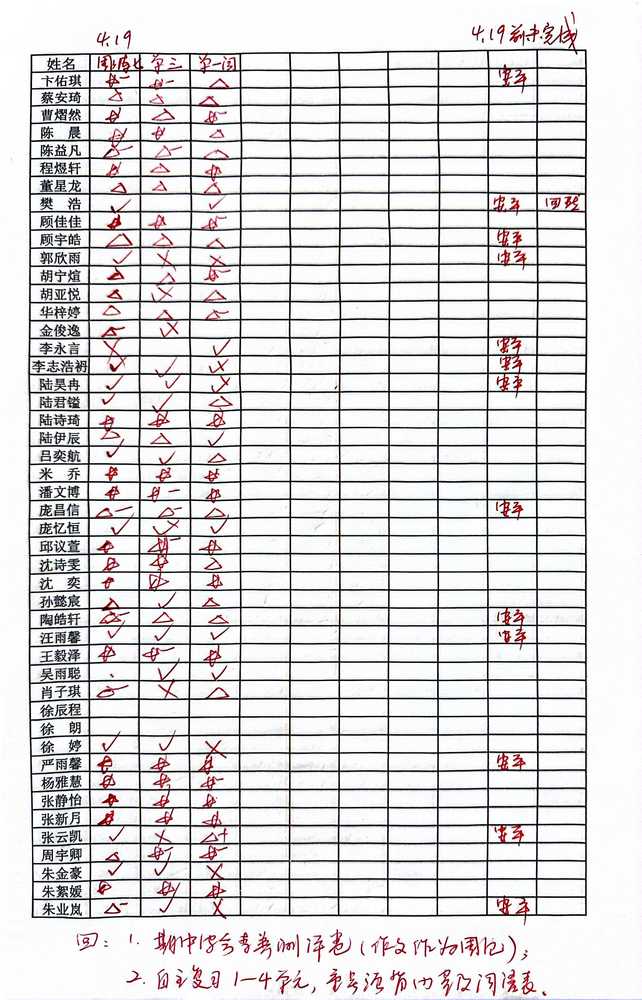 4.19 4.19前未完成
姓名 单三 单一词
卞佑琪 安平
蔡安琦
曹熠然
陈 晨
陈益凡
程煜轩
董星龙
樊 浩 安平
顾佳佳
顾宇皓 安平
郭欣雨 安平
胡宁煊
胡亚悦
华梓婷
金俊逸
李永言 安平
李志浩礽 安平
陆昊冉 安平
陆君镒
陆诗琦
陆伊辰
吕奕航
米 乔
潘文博
庞昌信 安平
庞忆恒
邱议萱
沈诗雯
沈 奕
孙懿宸
陶皓轩 安平
汪雨馨 安平
王毅泽
吴雨聪
肖子琪
徐辰程
徐 朗
徐 婷
严雨馨 安平
杨雅慧
张静怡
张新月
张云凯 安平
周宇卿
朱金豪
朱絮媛
朱业岚 安平
回: 1. 期中综合素养测评卷(作文作为周记);
2. 自主复习1-4单元,